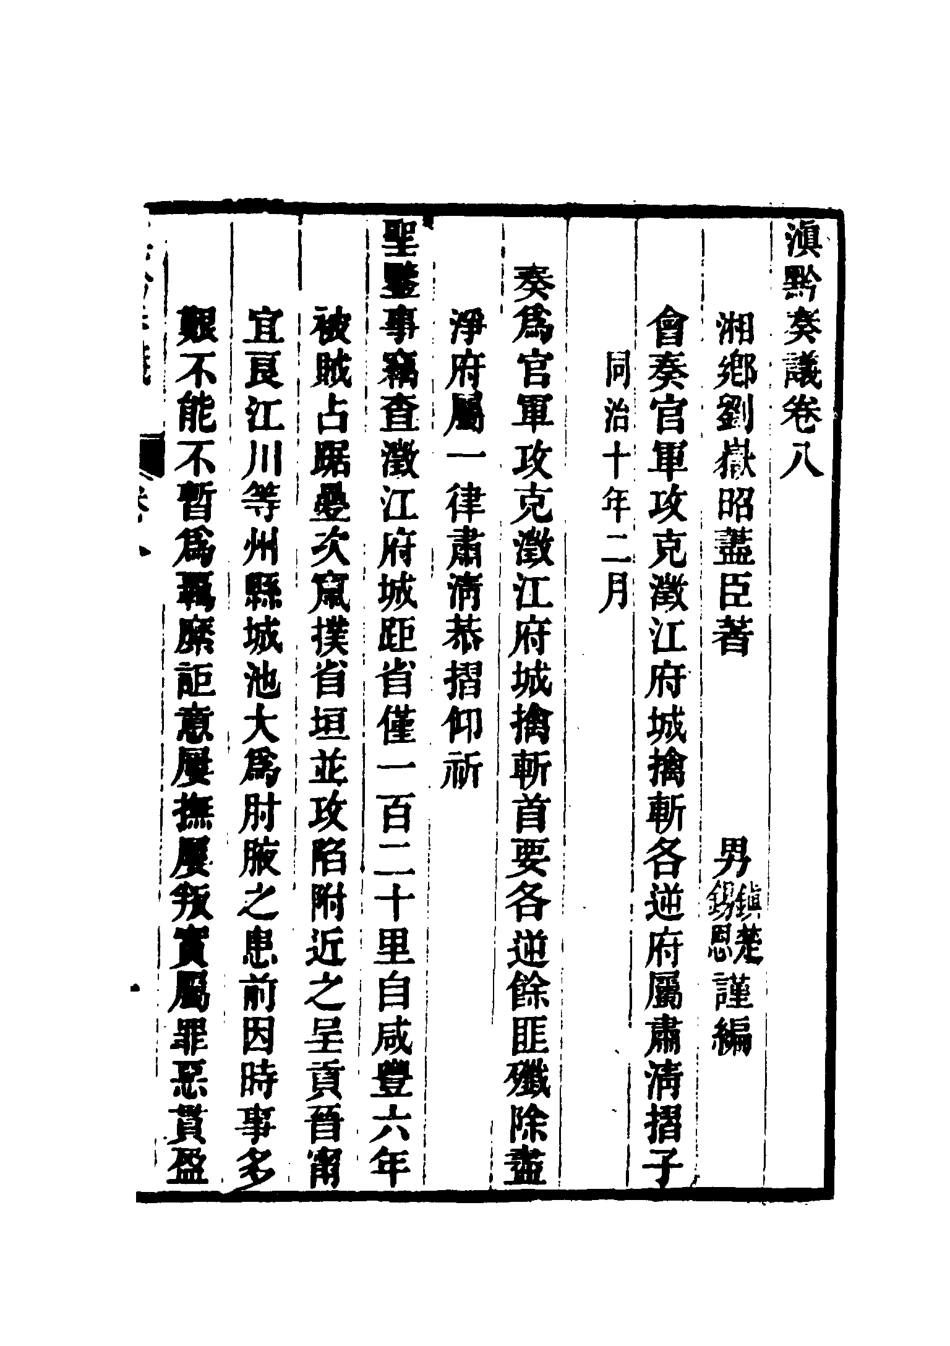 滇黔奏議卷八
湘鄉劉嶽昭藎臣著　男鎮楚錫恩謹編
會奏官軍攻克澂江府城擒斬各逆府屬肅清摺子
同治十年二月
奏爲官軍攻克澂江府城擒斬首要各逆餘匪殲除盡
淨府屬一律肅清恭摺仰祈
聖鑒事竊查澂江府城距省僅一百二十里自咸豐六年
被賊占踞曡次竄撲省垣並攻陷附近之呈貢晉甯
宜良江川等州縣城池大爲肘腋之患前因時事多
艱不能不暫爲羈縻詎意屢撫屢叛實屬罪惡貫盈